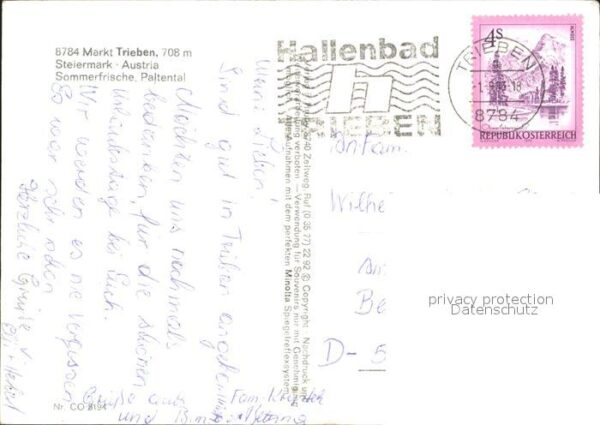 8784 Markt Trieben, 708 m
Steiermark · Austria
Sommerfrische, Paltental
Hallenbad
TRIEBEN
TRIEBEN
8784
4S
REPUBLIK ÖSTERREICH
Meine Lieben!
Sind gut in Trieben
Möchten uns nochmals
bedanken, für die schönen
Urlaubstage bei Euch.
Wir werden es nie vergessen
Es war sehr schön
Herzliche Grüße v.
Grüße auch Fam.
und
Zeltweg Ruf (0 35 77) 22 92 © Copyright · Nachdruck u.
verboten — Verwendung für Souvenirs nur mit Genehmigung
Aufnahmen mit dem perfekten Minolta Spiegelreflexsystem
An Fam.
Wilhe
An
Be
D-5
privacy protection
Datenschutz
Nr. CO 8194